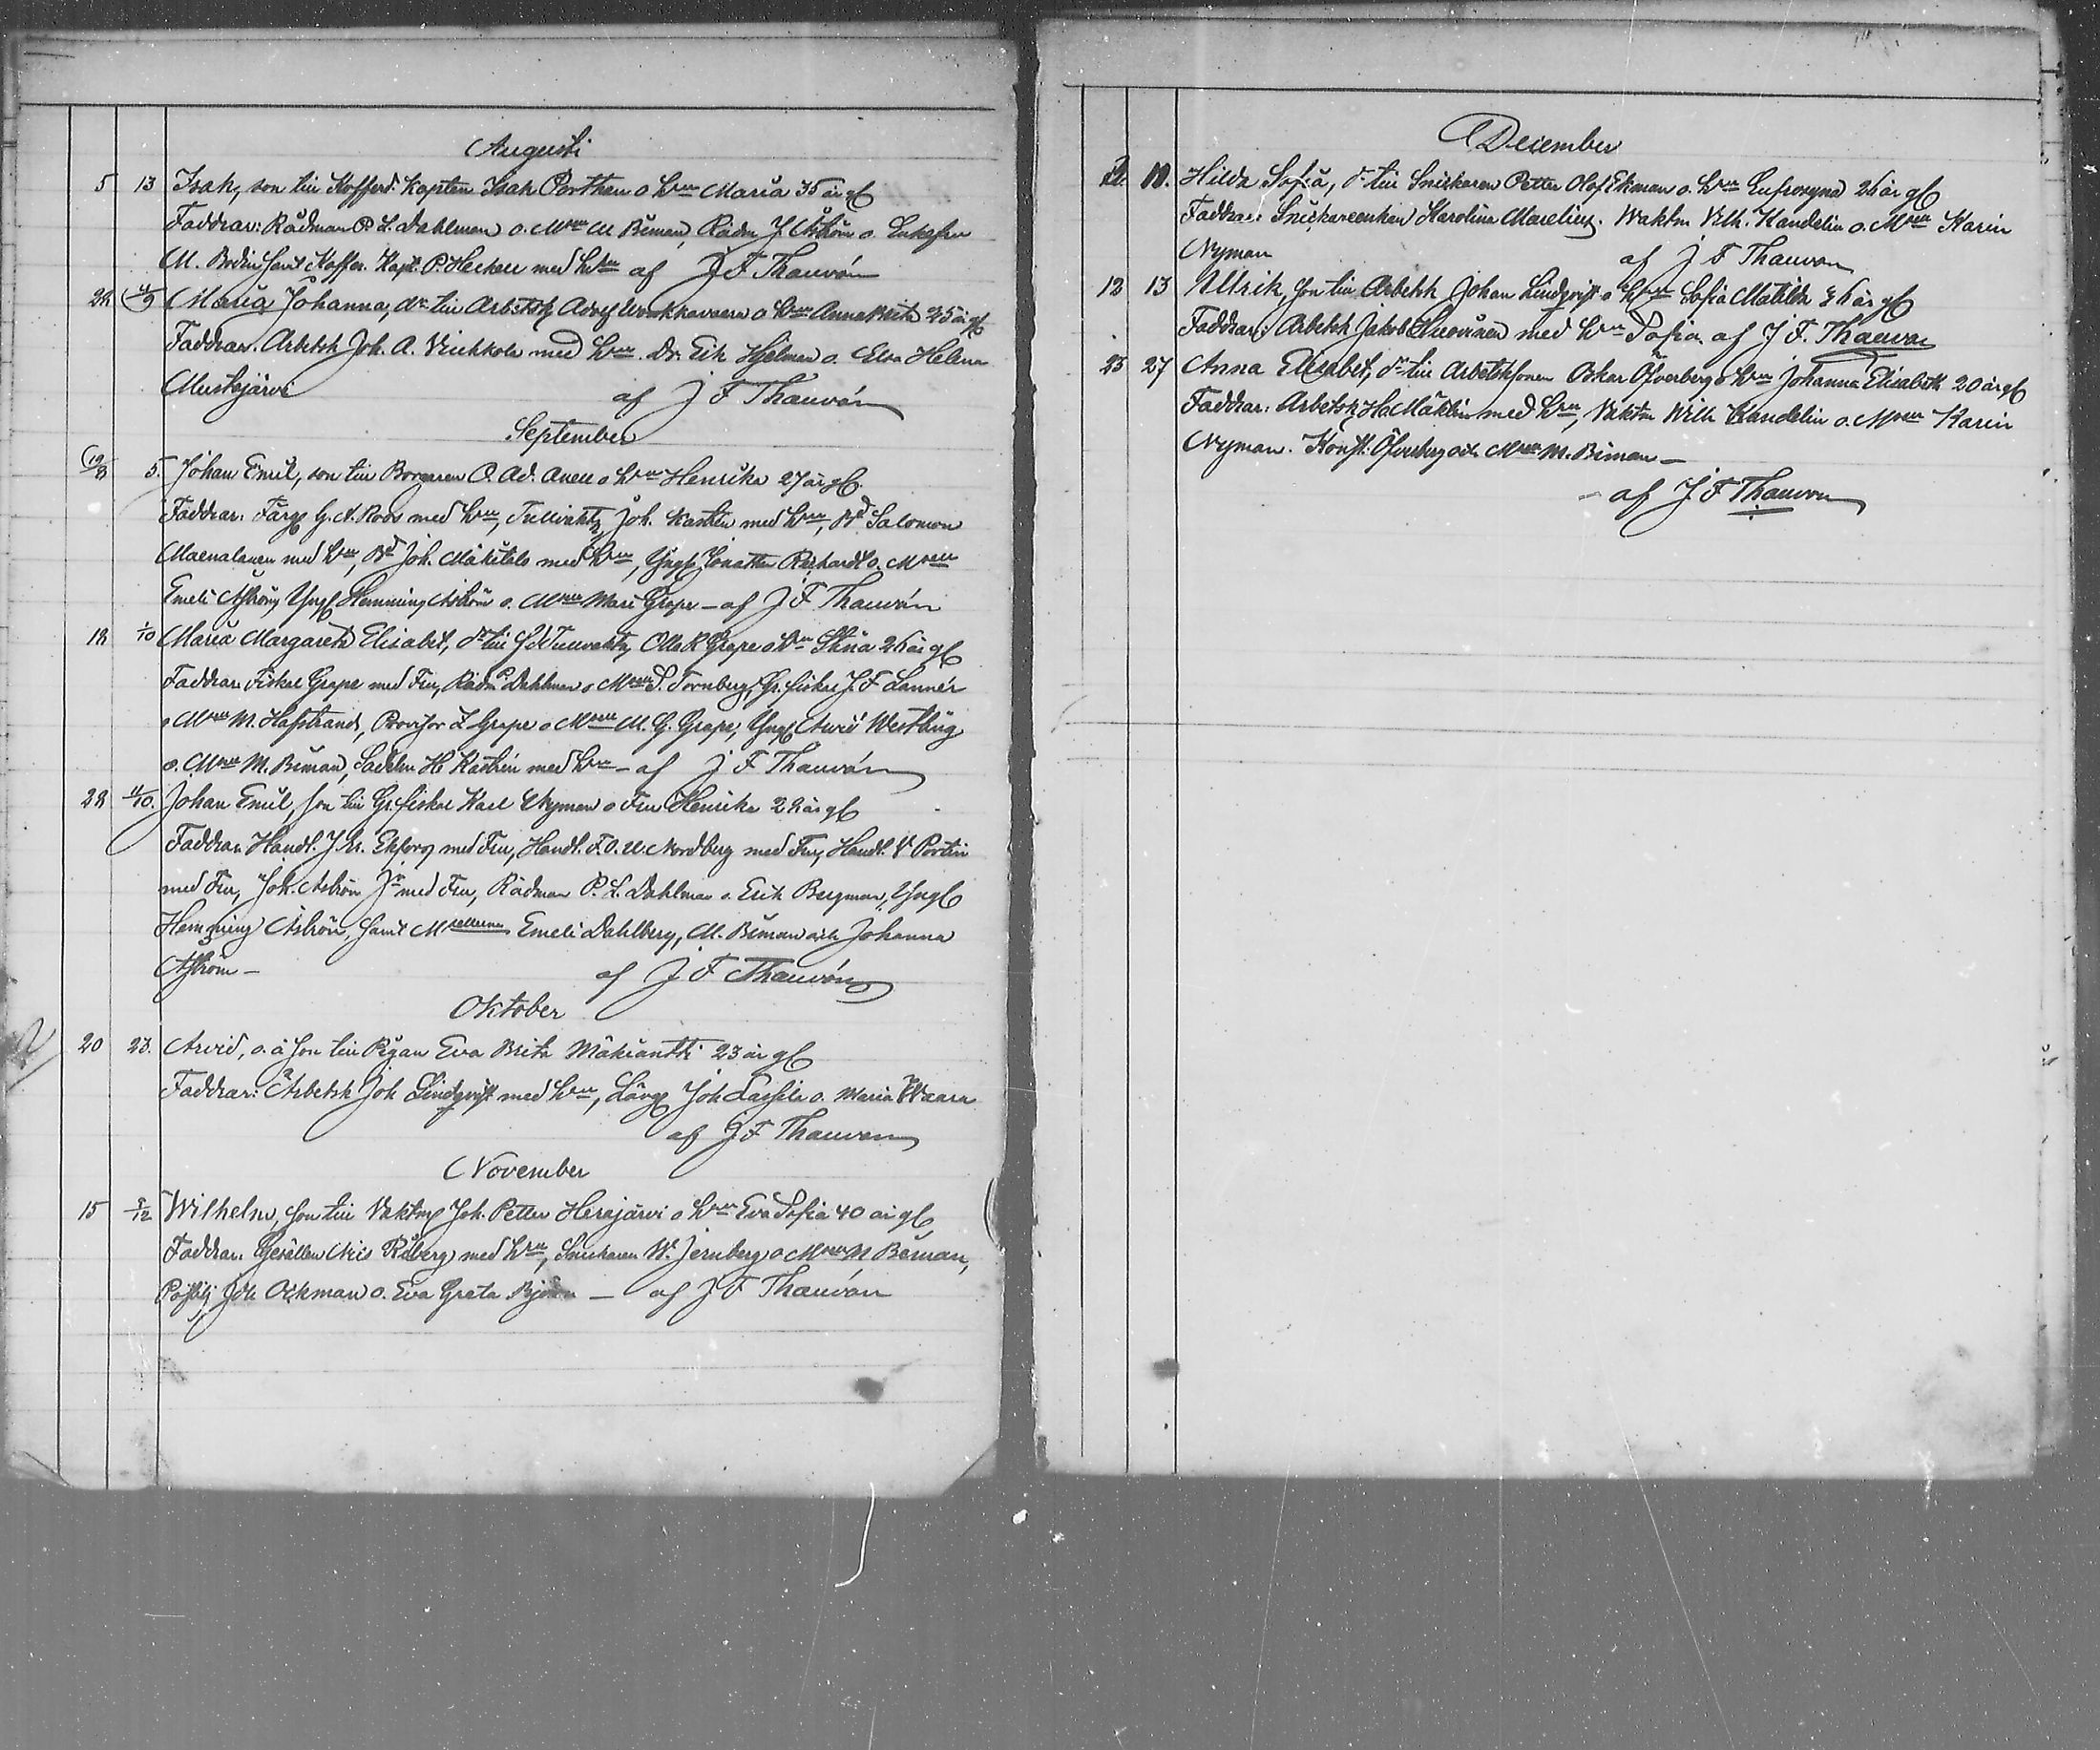 Augusti
5 13 Isak, son till Kofferd. Kapten Isak Porthan o hru Maria 35 år gl
Faddrar: Rådman P. L. Dahlman o. Mlle M Biman, Rådm J Åström o. Enkefru
M. Bodin samt Koffer. Kapt. P. Heckell med hru af J F Thauvón
28 11/9 Maria Johanna, dr till Arbetsk Adolf o hru Anna Brita 25 år gl
Faddrar. Arbetsk Joh. A. Viekkola med hru. Dr. Erik Hjelman o. Elsa Helena
Mustajärvi af J F Thauvón
September
19/8 5. Johan Emil, son till Borgaren O. Ad. o hru Henrika 27 år gl.
Faddrar. Färg. G. A. Roos med hru, Tullvakt Joh. Kastén med hru, Bd Salomon
Maenalanen med hru, Bd Joh. Mäkitalo med hru, Yngl Jonathan o. Mlle
Emeli Åström, Yngl Hemming Åström o. Mlle Mari Grape - af J F Thauvón
18 1/10 Maria Margareta Elisabet, dr till Tullvakt, Olle R Grape o hru Stina 26 år gl
Faddrar. Fiskal Grape med Fru, Rådm P. Dahlman o Mlle S. Tornberg, Gr. fiskal J. F Lannér
o Mlle M. Hafstrand, Provisor L Grape o Mlle M. G. Grape, Yngl Arvid
o. Mlle M. Biman, Sadelm H Kastrén med hru - af J F Thauvón
28 11/10. Johan Emil, son till Gr. fiskal Karl Nyman o Fru Henrika 28 år gl
Faddrar. Handl. J. M. Ekfors med Fru, Handl. F. O. U. Nordberg med Fru, Handl. V Portin
med Fru, Joh. Åström Jr med Fru, Rådman P. L. Dahlman o. Erik Bergman, Yngl
Hemming Åström, samt Msellerna Emeli Dahlberg, M. Biman och Johanna
Åström - af J F Thauvón
Oktober
20 23. Arvid, o. ä son till Pigan Eva Brita Mäkiantti 23 år gl
Faddrar: Arbetsk Joh Lindqvist med hru, Joh Lassila o. Maria Waara
af J F Thauvon
November
15 9/12 Wilhelm, son till Vaktm Joh. Petter Herajärvi o hru Eva Sofia 40 år gl
Faddrar. Gesällen Nils Råberg med hru, Snickaren W. Jernberg o Mlle M Biman,
Joh Ockman o. Eva Greta - af J F Thauvón
December
10. Hilda Sofia, dr till Snickaren Petter Olof Ekman o. hru Eufrosyna 26 år gl
Faddrar: Snickareenkan Karolina Marelius. Waktm Vilh. Kandelin o. Mlle Karin
Nyman af J F Thauvon
12 13 Ullrik, son till Arbetsk Johan Lindqvist o hru Sofia Matilda 36 år gl
Faddrar: Arbetsk Jakob med hru Sofia af J F. Thauvon
25 27 Anna Elisabet, dr till Arbetsksonen Oskar Öfverberg o hru Johanna Elisabeth 20 år gl
Faddrar: Arbetsk, Ha Mäklin med hru, Vaktm Wilh Kandelin o. Mlle Karin
Nyman. Öfverberg och Mlle M. Biman -
- af J F Thauvon